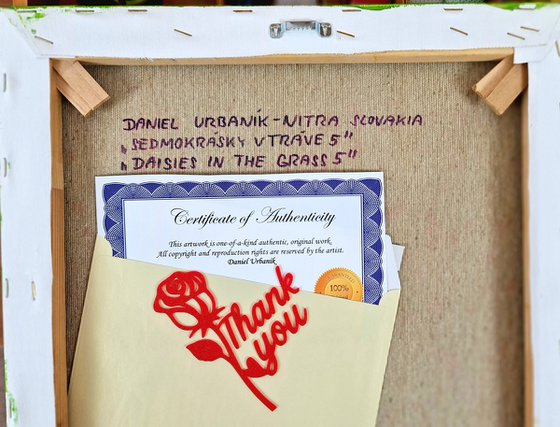 DANIEL URBANÍK - NITRA SLOVAKIA
„SEDMOKRÁSKY V TRÁVE 5"
„DAISIES IN THE GRASS 5"
Certificate of Authenticity
This artwork is one-of-a-kind authentic, original work.
All copyright and reproduction rights are reserved by the artist.
Daniel Urbaník
100%
Thank
you